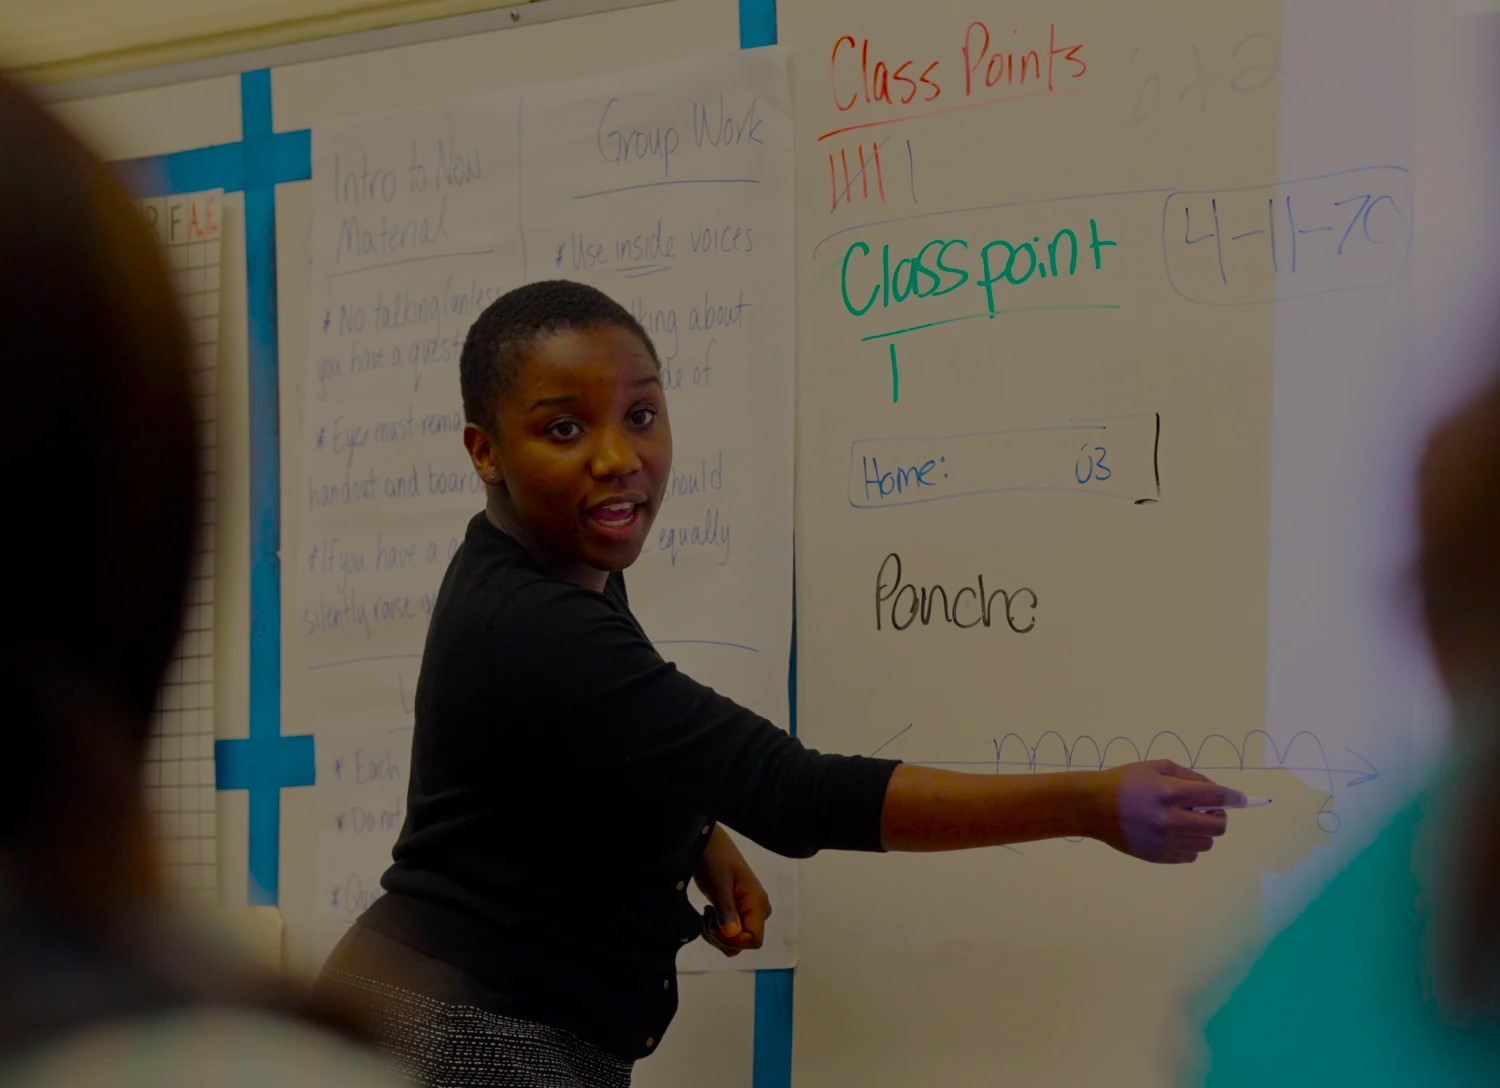 R F A.E.
Intro to New
Material
* No talking (unless
you have a quest
* Eyes must rema
handout and board
* If you have a
silently raise
* Each
* Do not
Group Work
* Use inside voices
king about
de of
hould
equally
Class Points
6+2
Class point
4-11-70
Home: 03
Poncho
6